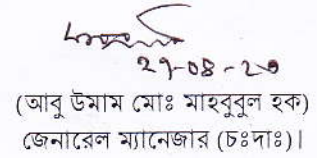 ২৭-০৪-২০
(আবু উমাম মোঃ মাহবুবুল হক)
জেনারেল ম্যানেজার (চঃদাঃ)।